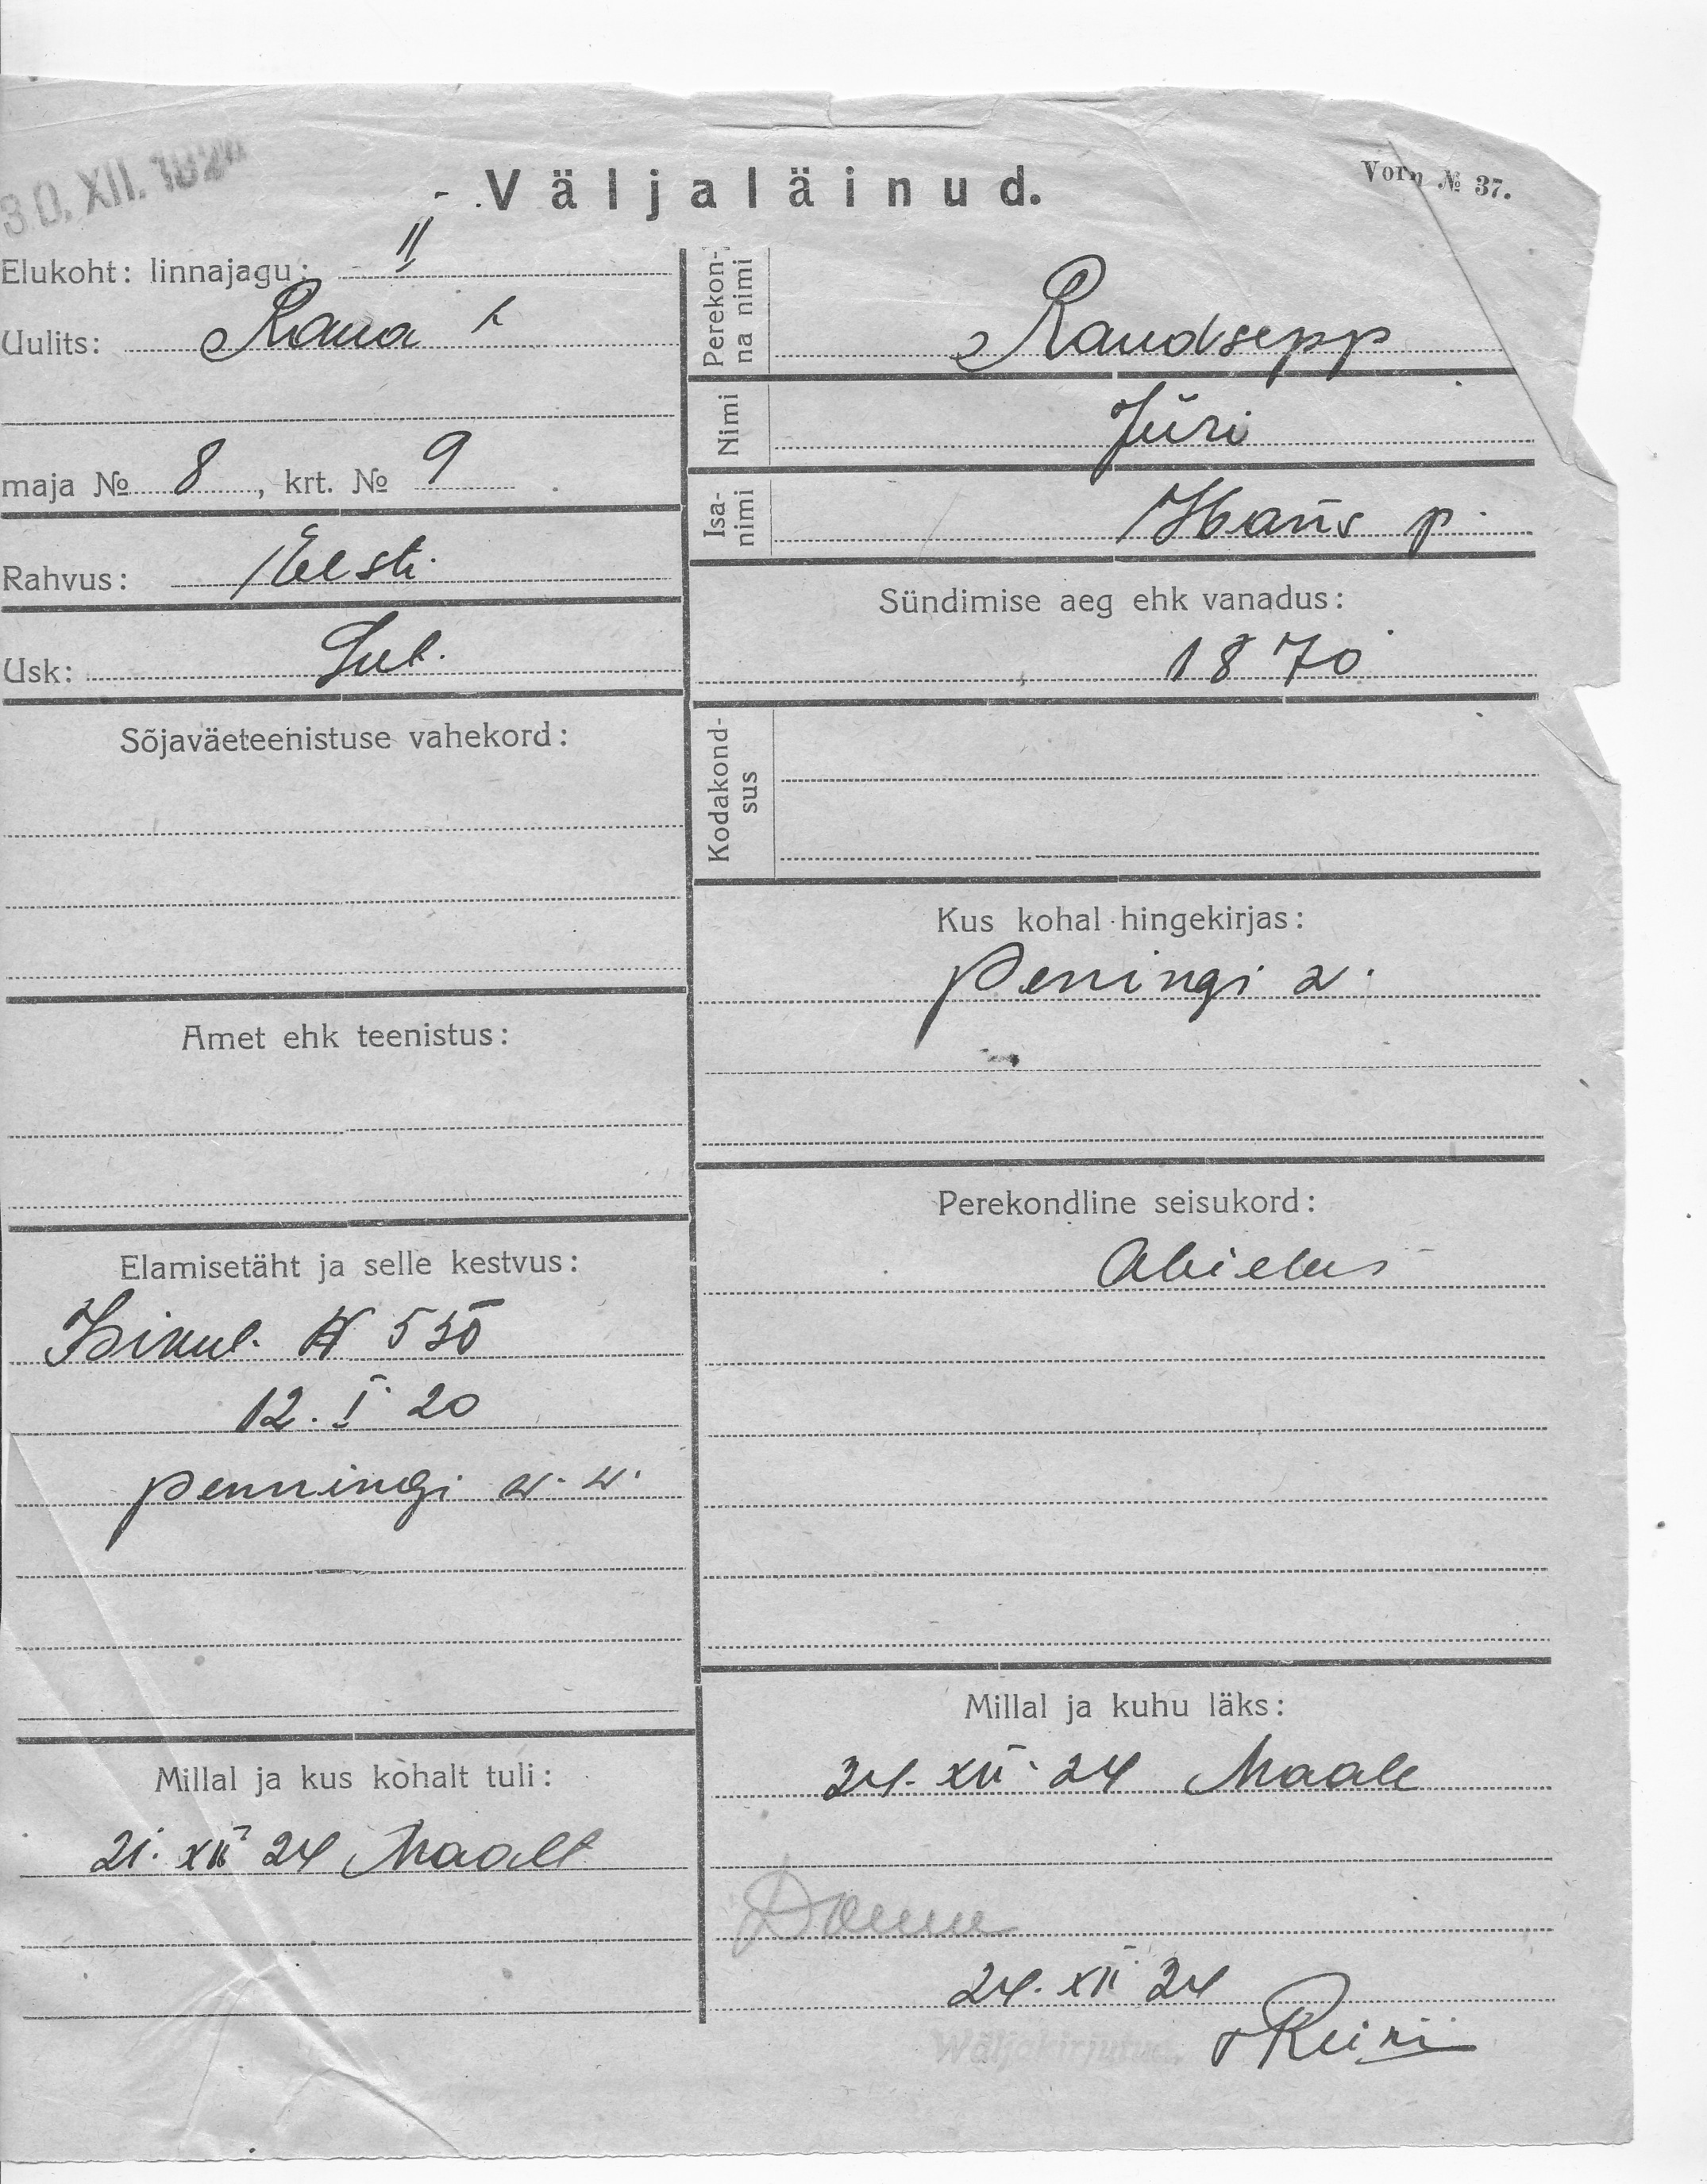 30. XII. 192
Vorm № 37.
Väljaläinud.
Elukoht: linnajagu: II
Uulits: Raua t
maja № 8, krt. № 9
Rahvus: Eesti
Usk: Lut.
Sõjaväeteenistuse vahekord:
Amet ehk teenistus:
Elamisetäht ja selle kestvus:
Isikul. № 530
12. I 20
Penningi w. w.
Millal ja kus kohalt tuli:
21. XII 24 Maalt
Perekonna nimi
Raudsepp
Nimi
Jüri
Isanimi
Hans p.
Sündimise aeg ehk vanadus:
1870
Kodakondsus
Kus kohal hingekirjas:
Peningi w.
Perekondline seisukord:
Abielus
Millal ja kuhu läks:
24. XII 24 Maale
24. XII 24
Wäljakirjutud.